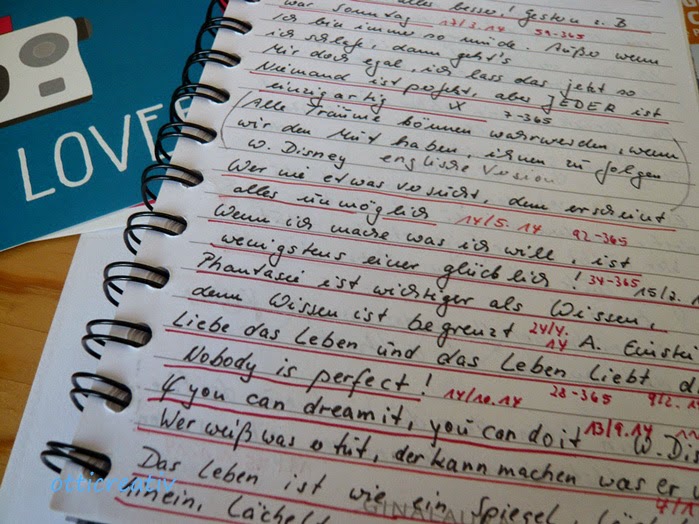 alles besser! Gestern z. B
war Sonntag 17/3.14 59-365
Ich bin immer so müde. Außer wenn
ich schlafe, dann geht's
Mir doch egal, ich lass das jetzt so
Niemand ist perfekt, aber JEDER ist
einzigartig IX 7-365
(Alle Träume können wahrwerden, wenn
wir den Mut haben, ihnen zu folgen
W. Disney englische Version
Wer nie etwas versucht, dem erscheint
alles unmöglich 14/5.14 92-365
Wenn ich mache was ich will, ist
wenigstens einer glücklich! 34-365 15/2.
Phantasie ist wichtiger als Wissen,
denn Wissen ist begrenzt 24/4. 14 A. Einstein
Liebe das Leben und das Leben liebt
Nobody is perfect! 14/10.14 28-365 9/2.
If you can dream it, you can do it 13/9.14 W. Dis
Wer weiß was o tut, der kann machen was er
Das Leben ist wie ein Spiegel
mein. Lächel
GINALAU
LOVE
otticreativ